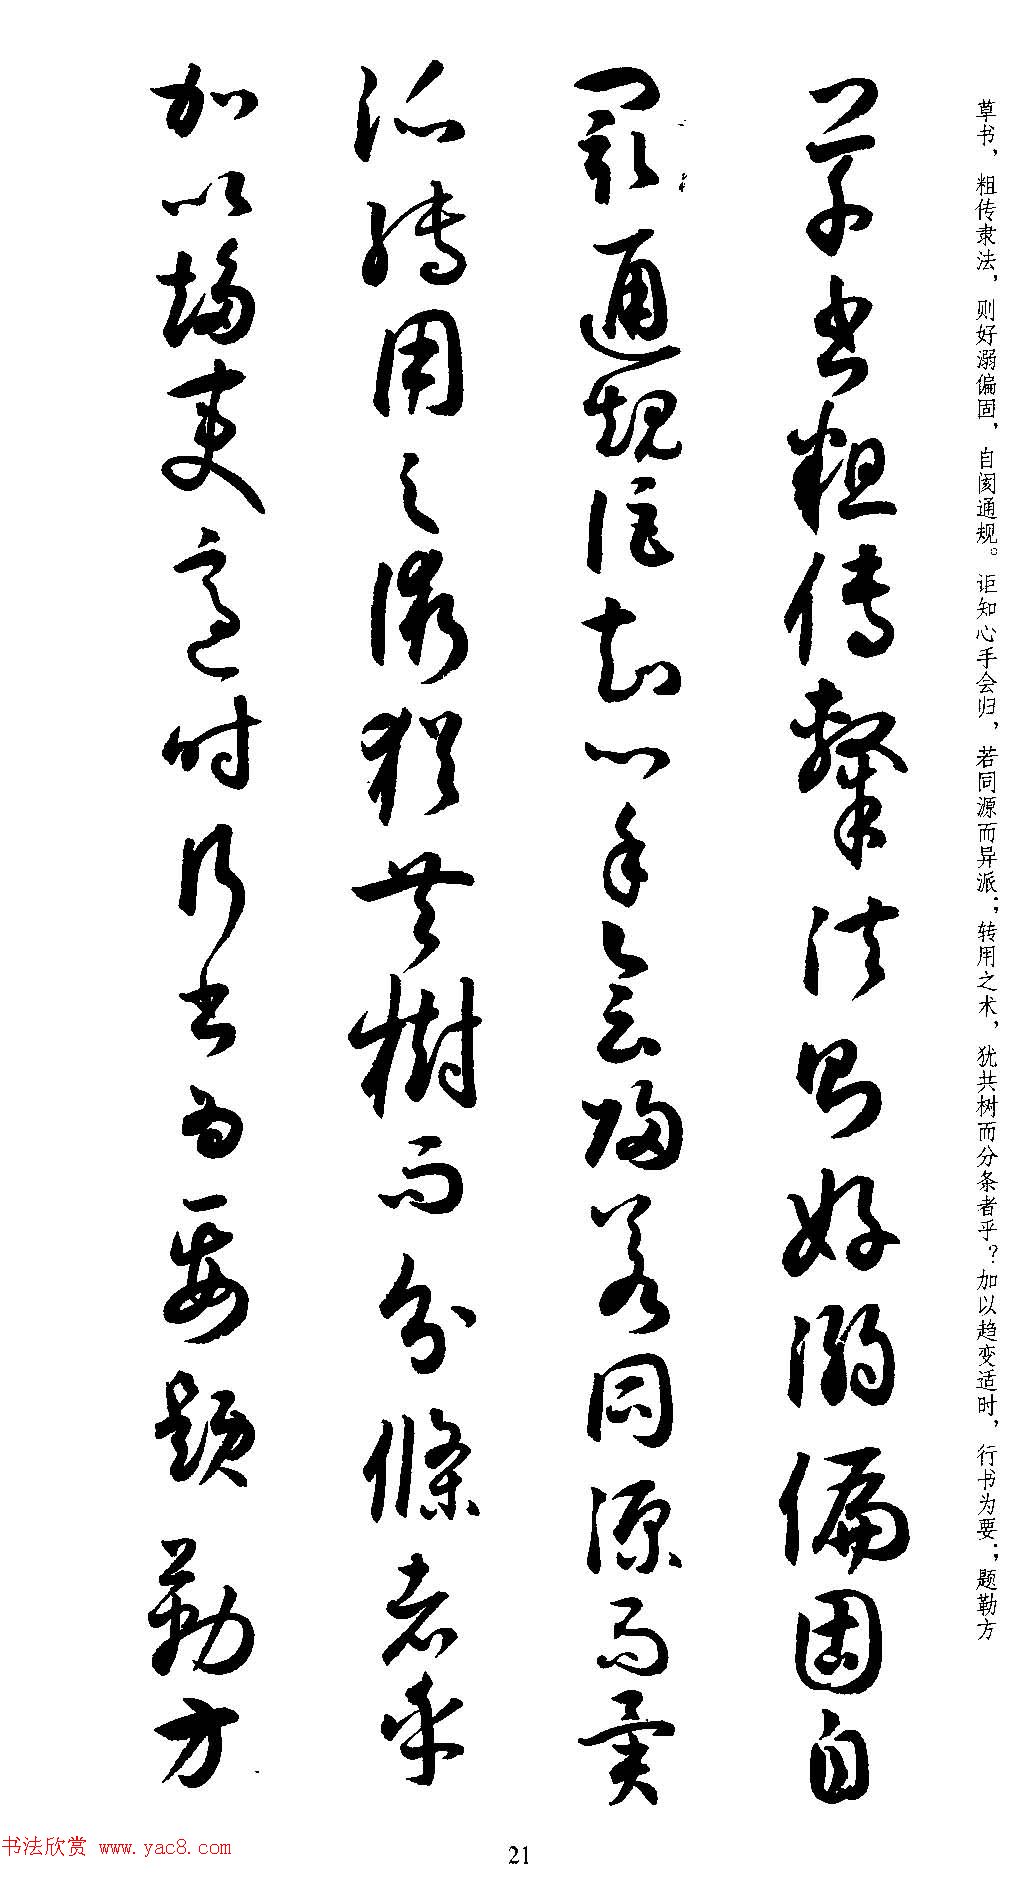 草书，粗传隶法，则好溺偏固，自阂通规。讵知心手会归，若同源而异派；转用之术，犹共树而分条者乎？加以趋变适时，行书为要；题勒方
草书粗传隸法则好溺偏固自
阂通規詎知心手会歸若同源而異
派转用之術猶共樹而分條者乎
加以趨変适时行书为要题勒方
书法欣赏 www.yac8.com
21